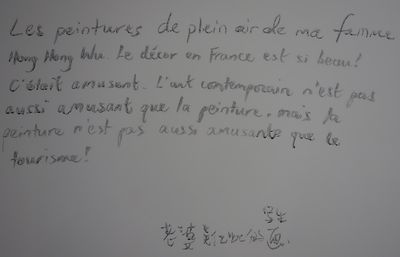 Les peintures de plein air de ma famme
Hong Hong Wu. Le décor en France est si beau!
C'était amusant. L'art contemporain n'est pas
aussi amusant que la peinture, mais la
peinture n'est pas aussi amusante que le
tourisme!
写生
老婆 画